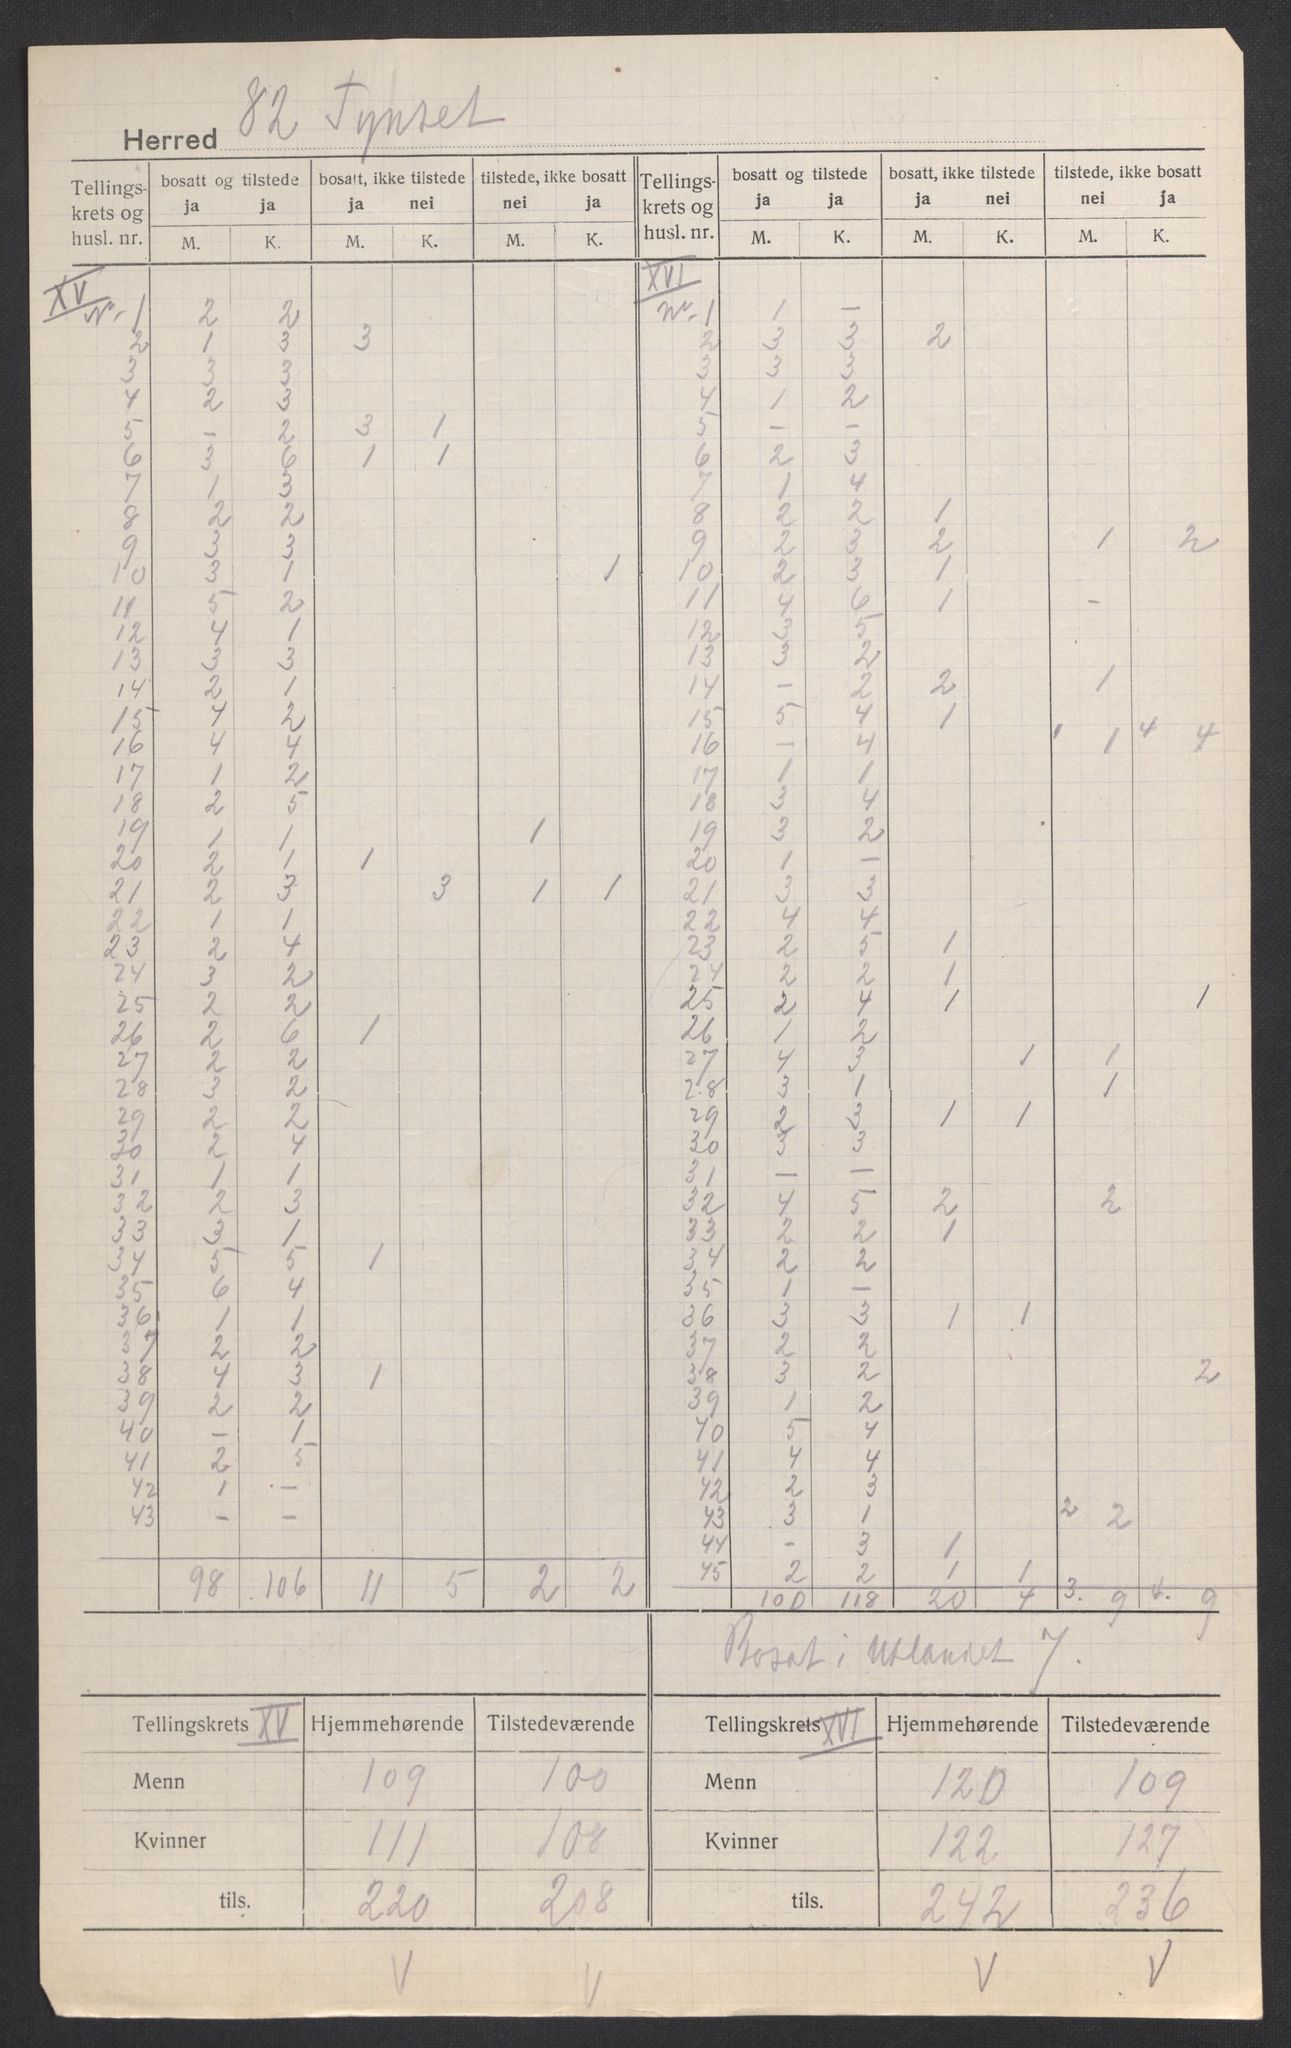 Herred 82 Tynset
Tellings- krets og husl. nr. | bosatt og tilstede ja ja | bosatt, ikke tilstede ja nei | tilstede, ikke bosatt nei ja | Tellings- krets og husl. nr. | bosatt og tilstede ja ja | bosatt, ikke tilstede ja nei | tilstede, ikke bosatt nei ja
M. K. M. K. M. K. M. K. M. K. M. K.
XV XVI
Nr. 1 2 2 | Nr. 1 1 -
2 1 3 3 | 2 3 3 2
3 3 3 | 3 3 3
4 2 3 | 4 1 2
5 - 2 3 1 | 5 - -
6 3 6 1 1 | 6 2 3
7 1 3 | 7 1 4
8 2 2 | 8 2 2 1
9 3 3 | 9 2 3 2 1 2
10 3 1 1 | 10 2 3 1
11 5 2 | 11 4 6 1 -
12 4 1 | 12 3 5
13 3 3 | 13 3 2
14 2 1 | 14 - 2 2 1
15 4 2 | 15 5 4 1
16 4 4 | 16 - 4 1 1 4 4
17 1 2 | 17 1 1
18 2 5 | 18 3 4
19 1 1 1 | 19 3 2
20 2 1 1 | 20 1 -
21 2 3 3 1 1 | 21 3 3
22 1 1 | 22 4 4
23 2 4 | 23 2 5 1
24 3 2 | 24 2 2 1
25 2 2 | 25 2 4 1 1
26 2 6 1 | 26 1 2
27 2 2 | 27 4 3 1 1
28 3 2 | 28 3 1 1
29 2 2 | 29 2 3 1 1
30 2 4 | 30 3 3
31 1 1 | 31 - -
32 2 3 | 32 4 5 2 2
33 3 1 | 33 2 2 1
34 5 5 1 | 34 2 2
35 6 4 | 35 1 -
36 1 1 | 36 3 3 1 1
37 2 2 | 37 2 2
38 4 3 1 | 38 3 2 2
39 2 2 | 39 1 2
40 - 1 | 40 5 4
41 2 5 | 41 4 4
42 1 - | 42 2 3
43 - - | 43 3 1 2 2
44 - 3 1
45 2 2 1 1
98 106 11 5 2 2 | 100 118 20 4 3. 9 4. 9
Bosat i Utlandet 7.
Tellingskrets XV | Hjemmehørende | Tilstedeværende | Tellingskrets XVI | Hjemmehørende | Tilstedeværende
Menn 109 100 | Menn 120 109
Kvinner 111 108 | Kvinner 122 127
tils. 220 208 | tils. 242 236
V V V V